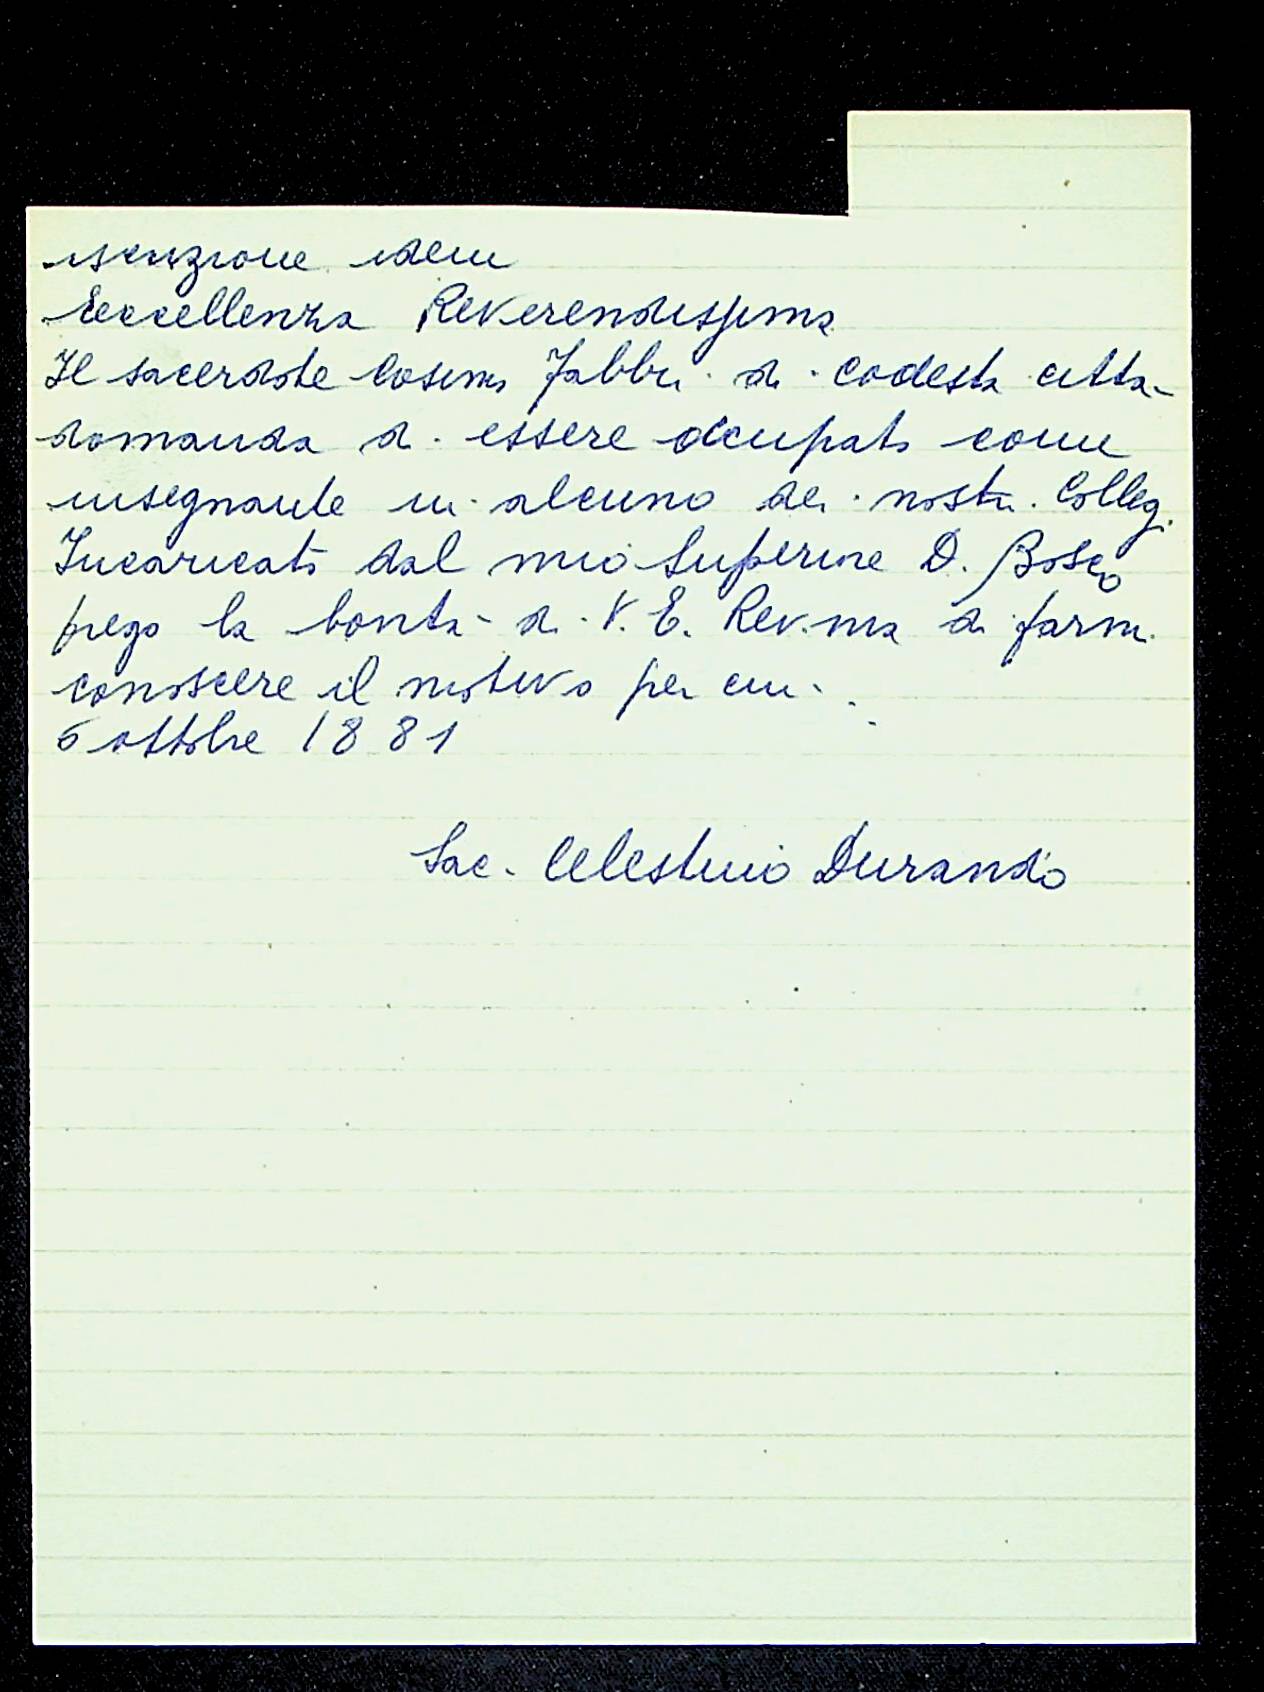 iscrizione idem
Eccellenza Reverendissima
Il sacerdote Cosimo Fabbri di codesta città
domanda di essere occupato come
insegnante in alcuno dei nostri Collegi.
Incaricato dal mio Superiore D. Bosco
prego la bontà di V. E. Rev.ma di farmi
conoscere il motivo per cui.
6 ottobre 1881
Sac. Celestino Durando